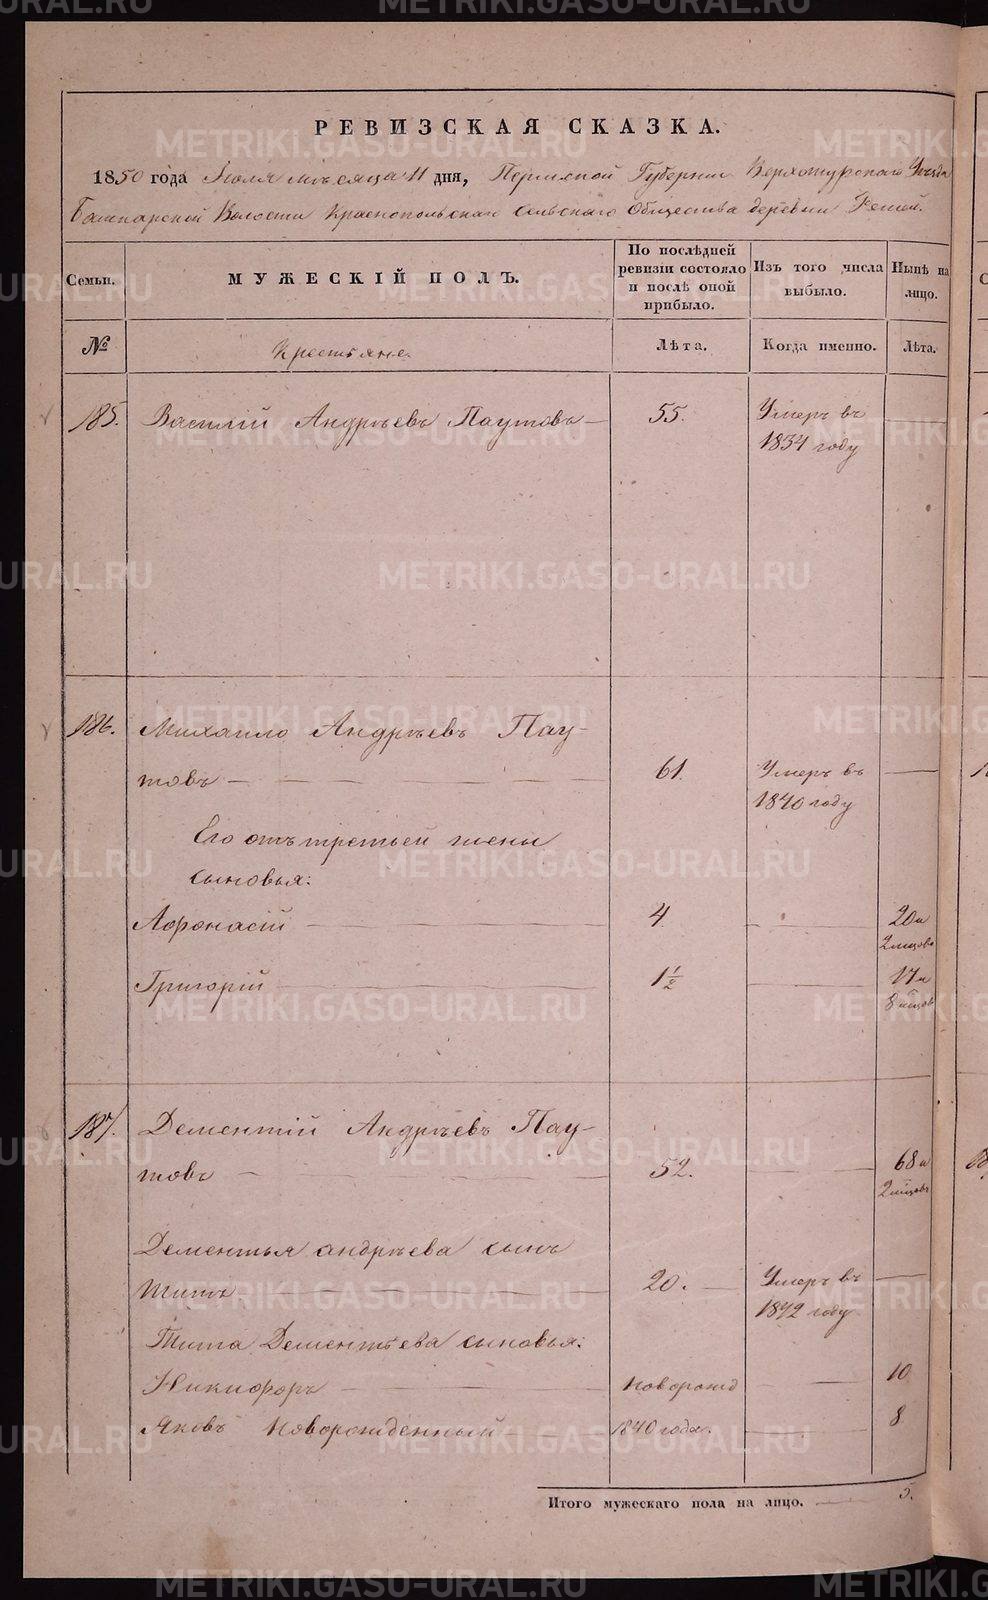 РЕВИЗСКАЯ СКАЗКА.
1850 года Июля месяца 11 дня, Пермской Губернии Верхотурскаго Уезда
Башкарской Волости Краснопольскаго Сельскаго Общества деревни
Семьи. МУЖЕСКІЙ ПОЛЪ. По послѣдней ревизіи состояло и послѣ оной прибыло. Изъ того числа выбыло. Нынѣ на лицо.
№ Крестьяне. Лѣта. Когда именно. Лѣта.
185. Василій Андрѣевъ Паутовъ — 55. Умеръ въ
1834 году
186. Михаило Андрѣевъ Пау-
товъ — 61. Умеръ въ —
1840 году
Его отъ третьей жены
сыновья:
Афонасій — 4 — 20 и
2 мѣсцовъ
Григорій — 1½ — 17 и
8 мѣсцовъ
187. Дементій Андрѣевъ Пау-
товъ — 52. — 68 и
2 мѣсцовъ
Дементья андрѣева сынъ
Титъ — 20. — Умеръ въ —
1842 году
Тита Дементьева сыновья:
Никифоръ — новорожд — 10
Яковъ новорожденный — 1840 года. — 8
Итого мужескаго пола на лицо. — 5.
METRIKI.GASO-URAL.RU